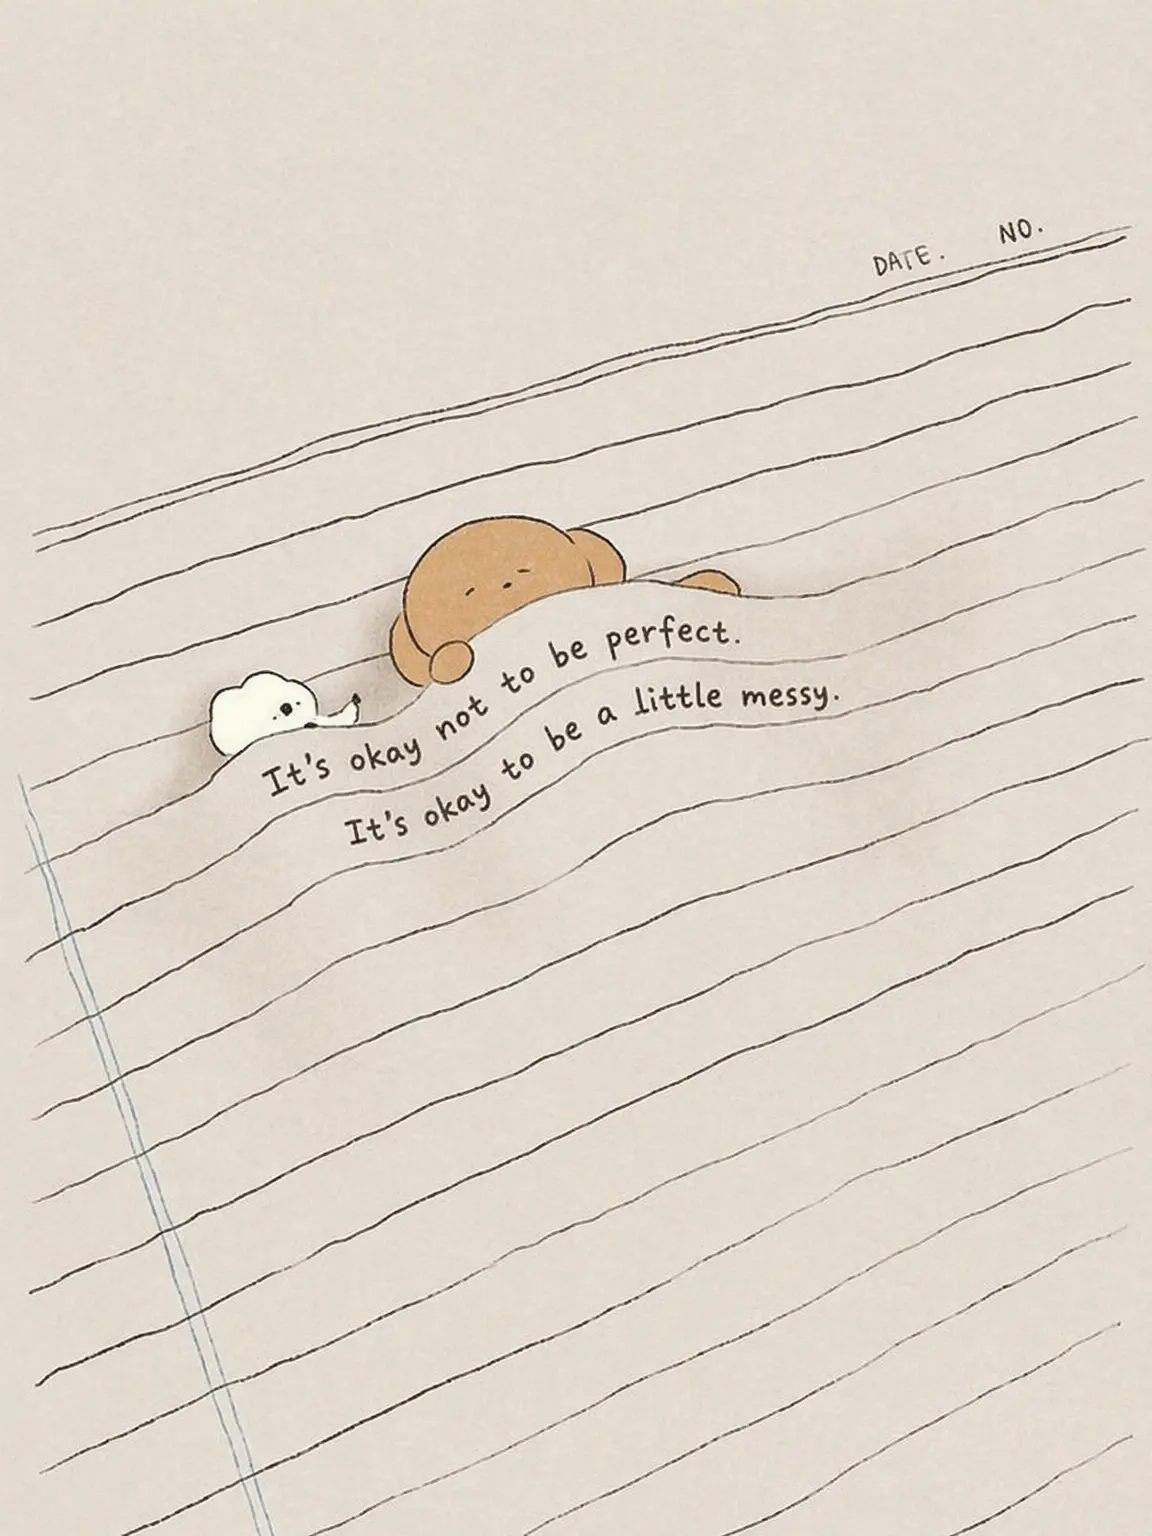 DATE. NO.
It's okay not to be perfect.
It's okay to be a little messy.